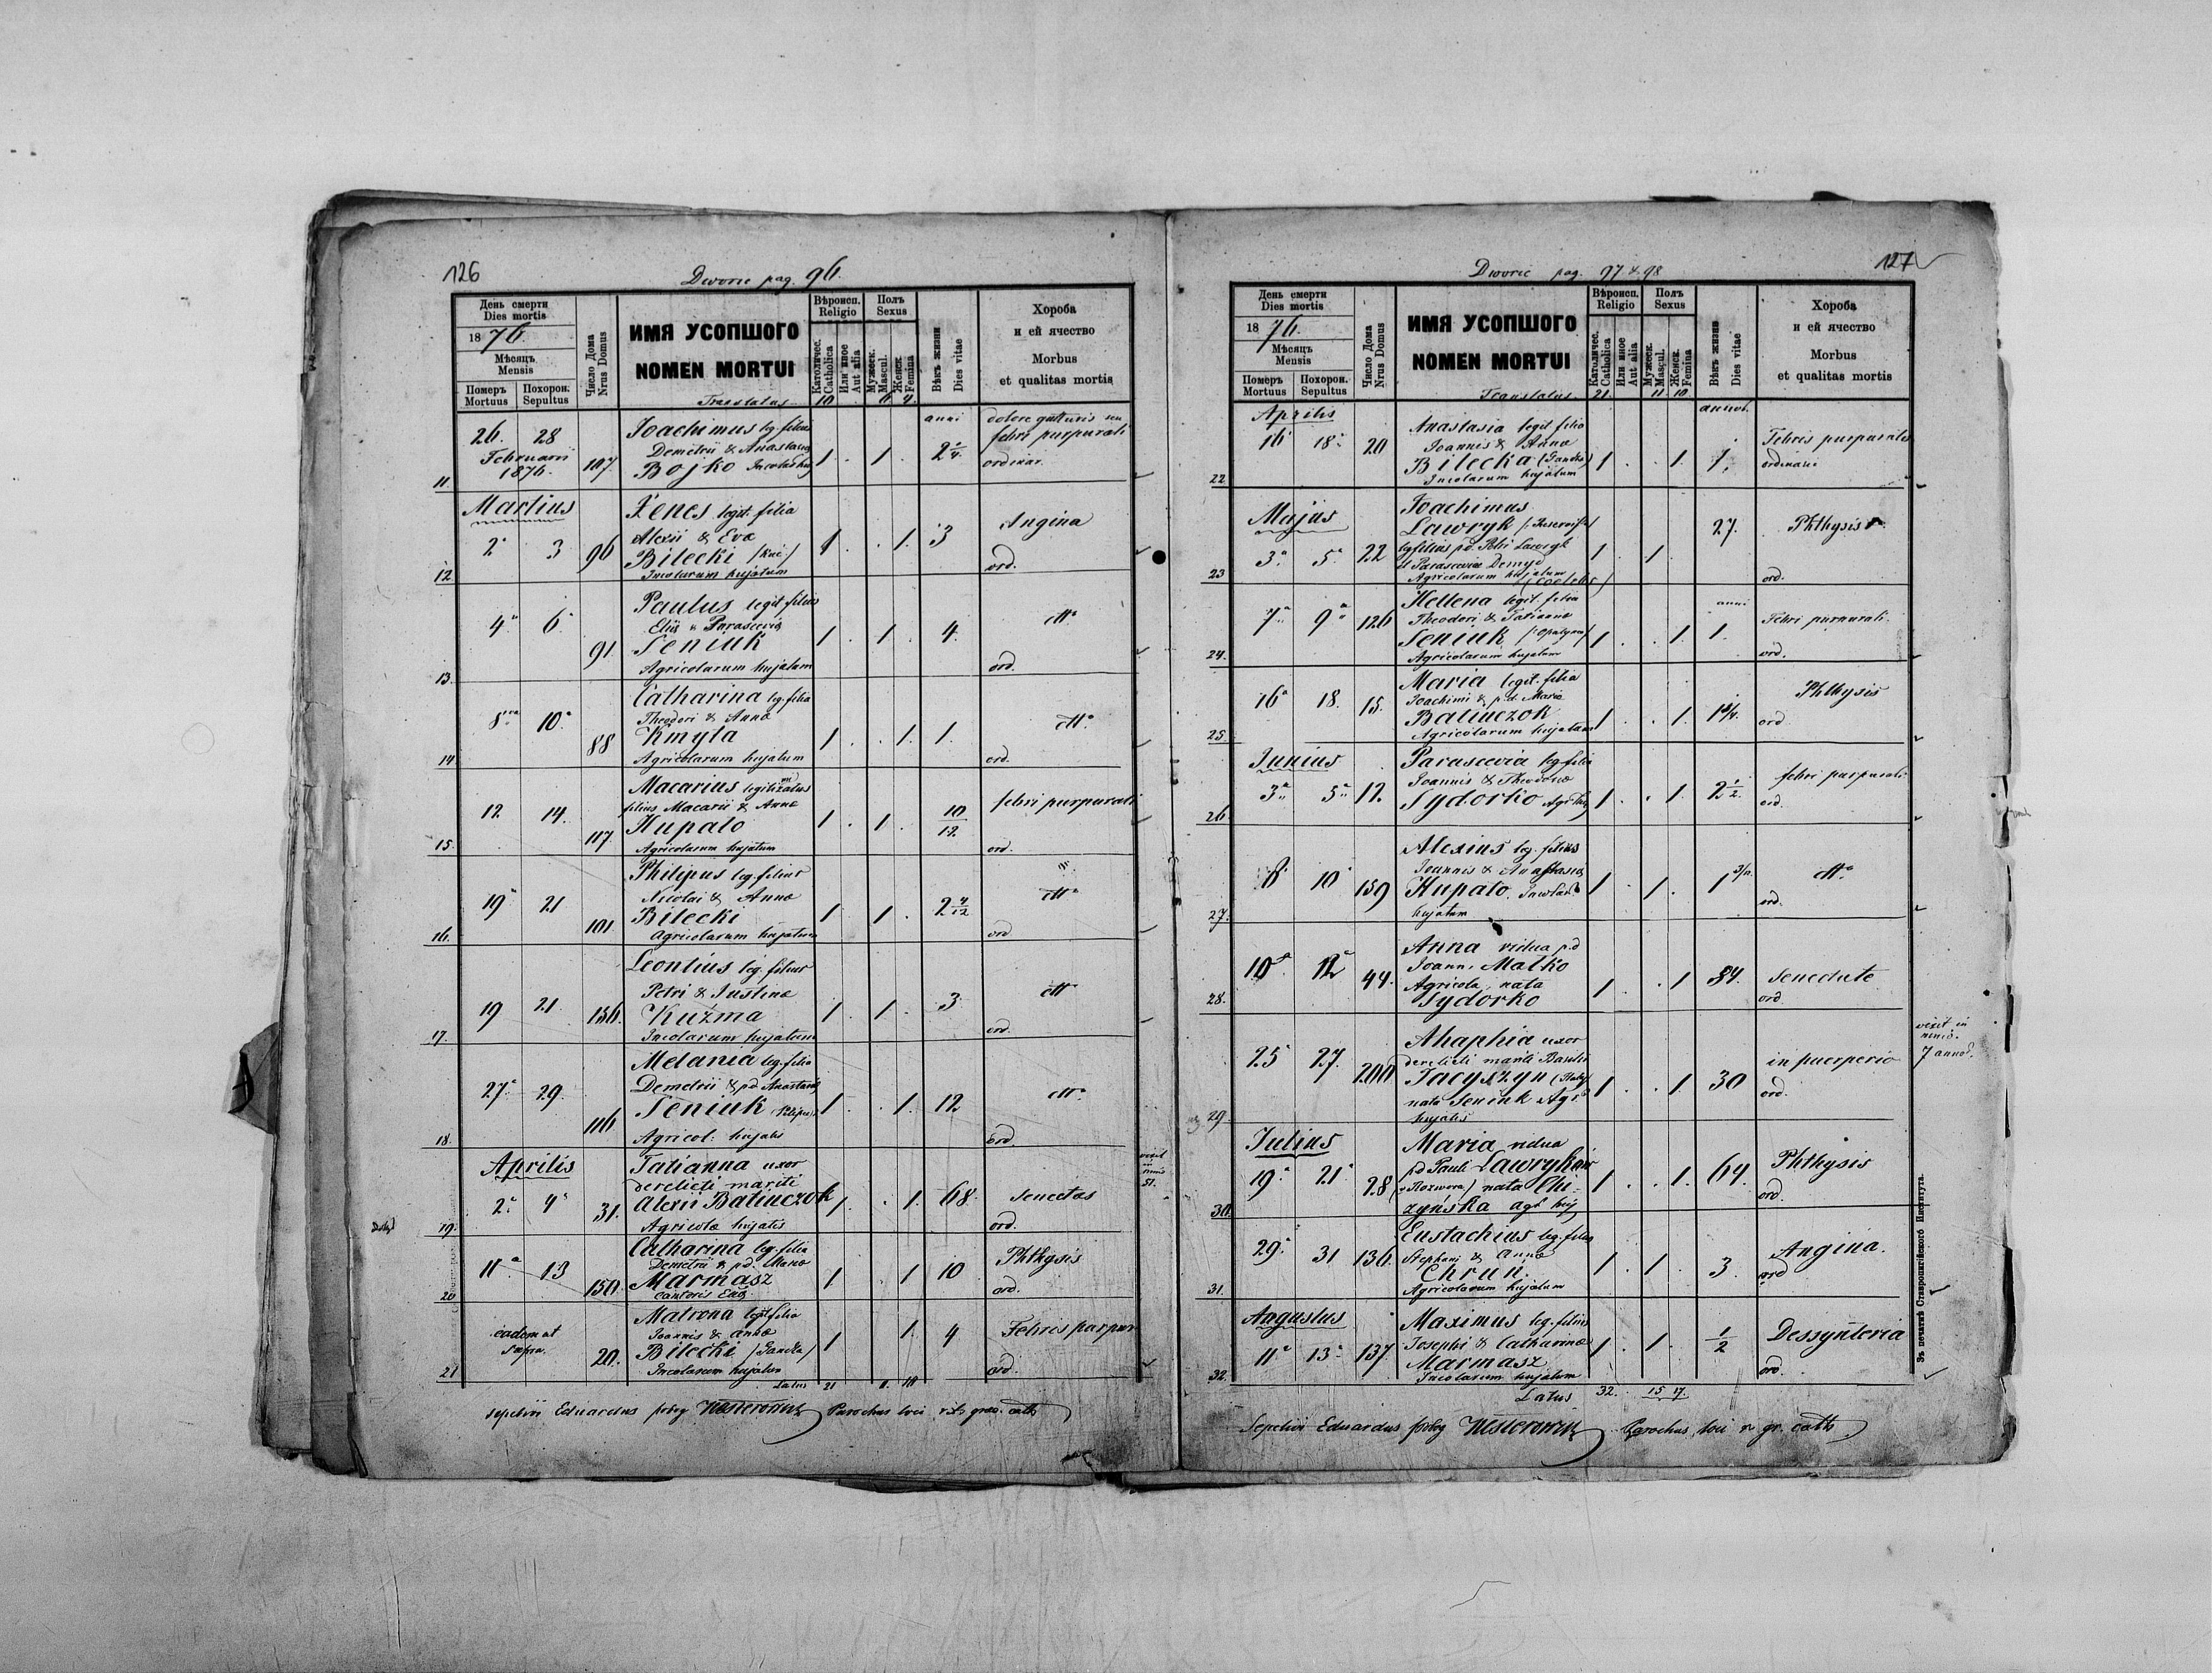 126
Dworie pag. 96.
День смерти
Dies mortis
1876.
Мѣсяцъ
Mensis
Померъ
Mortuus
Похорон.
Sepultus
Число Дома
Nrus Domus
ИМЯ УСОПШОГО
NOMEN MORTUI
Вѣроисп.
Religio
Католичес.
Catholica
Или иное
Aut alia
Полъ
Sexus
Мужеск.
Mascul.
Женск.
Femina
Вѣкъ жизни
Dies vitae
Хороба
и ей ячество
Morbus
et qualitas mortis
Translatus 10 . 6 4
11. 26. 28 Februarii 1876. 107
Joachimus leg. filius
Demetrii & Anastasiae
Bojko
1 . 1 . anni 2 1/4
dolore gutturis seu
febri purpurali
ordinar.
Martius
12 2 3 96
Xenes legit. filia
Alexii & Evae
Bilecki
Incolarum hujatum
1 . . 1. 3
Angina
ord.
13. 4 6 91
Paulus legit filius
Eliae & Parasceviae
Seniuk
Agricolarum hujatum
1 . 1 . 4.
dtto
ord.
14 8 10 88
Catharina leg. filia
Theodori & Annae
Kmyta
Agricolarum hujatum
1 . . 1. 1.
dtto
ord.
15. 12 14. 117
Macarius legitimatus
filius Macarii & Annae
Hupalo
Agricolarum hujatum
1 . 1 . 10/12
febri purpurali
ord.
16. 19 21 101
Philipus leg. filius
Nicolai & Annae
Bilecki
Agricolarum hujatum
1 1 . 2 4/12
dtto
ord
17. 19 21. 156.
Leontius leg. filius
Petri & Justinae
Kuzma
Incolarum hujatum
1 . 1 . 3
dtto
ord.
18. 27 29. 116
Melania leg. filia
Demetrii & pd. Anastasiae
Seniuk
Agricol: hujatis
1 . . 1. 12
dtto
ord
Aprilis
19. 2 4 31.
Tatianna uxor
derelicti mariti
Alexii Batiuczok
Agricolae hujatis
1 . . 1. 68
senectus
ord.
20 11 13 150.
Catharina leg. filia
Demetrii & pd. Mariae
Marmasz
Cantoris Eccl.
1 . 1 10
Phthysis
ord.
21 eadem ut supra. 20.
Matrona legit filia
Joannis & Annae
Bilecki /Jancka/
Incolarum hujatum
1 1. 4
Febris purpur
ord.
Latus 21 11. 10
Sepelivi Eduardus Parochus loci rit. graec. cath
127
Dworie pag. 97 & 98
День смерти
Dies mortis
1876.
Мѣсяцъ
Mensis
Померъ
Mortuus
Похорон.
Sepultus
Число Дома
Nrus Domus
ИМЯ УСОПШОГО
NOMEN MORTUI
Вѣроисп.
Religio
Католичес.
Catholica
Или иное
Aut alia
Полъ
Sexus
Мужеск.
Mascul.
Женск.
Femina
Вѣкъ жизни
Dies vitae
Хороба
и ей ячество
Morbus
et qualitas mortis
Translatus 21. 11. 10
Aprilis
22 16 18 20
Anastasia legit filia
Joannis & Annae
Bilecka (Jancka)
Incolarum hujatum
1 . . 1. 1.
Febris purpuralis
ordinarie
Majus
23 3 5 22
Joachimus
Lawryk
leg filius pd. Petri Lawryk
et Parasceviae Demyd
Agricolarum hujatum
(Coelebs)
1 . 1 27.
Phthysis
ord.
24. 7 9 126
Hellena legit. filia
Theodori & Tatianae
Seniuk
Agricolarum hujatum
1 . . 1 anni 1.
Febri purpurali.
ord.
25 16 18. 15.
Maria legit. filia
Joachimi & pd. Mariae
Batiuczok
Agricolarum hujatum
1 . . 1.
Phthysis
ord
Junius
26. 3 5 12.
Parascevia leg filia
Joannis & Theodorae
Sydorko
1 . . 1. 2 1/2.
febri purpurali
ord.
27. 8 10 159
Alexius leg. filius
Joannis & Anastasiae
Hupalo.
hujatum
1 . 1 .
dtto
ord.
28. 10 12 44.
Anna vidua pd
Joann. Malko
Agricola, nata
Sydorko
1 . . 1 84.
Senectute
ord.
29 25 27. 200
Ahaphia uxor
derelicti mariti Basilii
nata Seniuk Agr.
hujatis
1 . . 1 30
in puerperio
ord.
vixit in
7 annos.
Julius
30. 19 21 28
Maria vidua
pd Pauli
nata Chi-
zyńska
1 . . 1. 64.
Phthysis
ord.
31. 29 31 136.
Eustachius leg. filius
Stephani & Annae
Chrun.
Agricolarum hujatum
1 . 1 . 3.
Angina.
ord
Augustus
32. 11 13 137.
Maximus leg. filius
Josephi & Catharinae
Marmasz
Incolarum hujatum
1 . 1 . 1/2
Dessynteria
ord.
Latus 32. 15 17.
Sepelivi Eduardus Parochus loci r gr. cath
Зъ печатнѣ Ставропигійского Института.